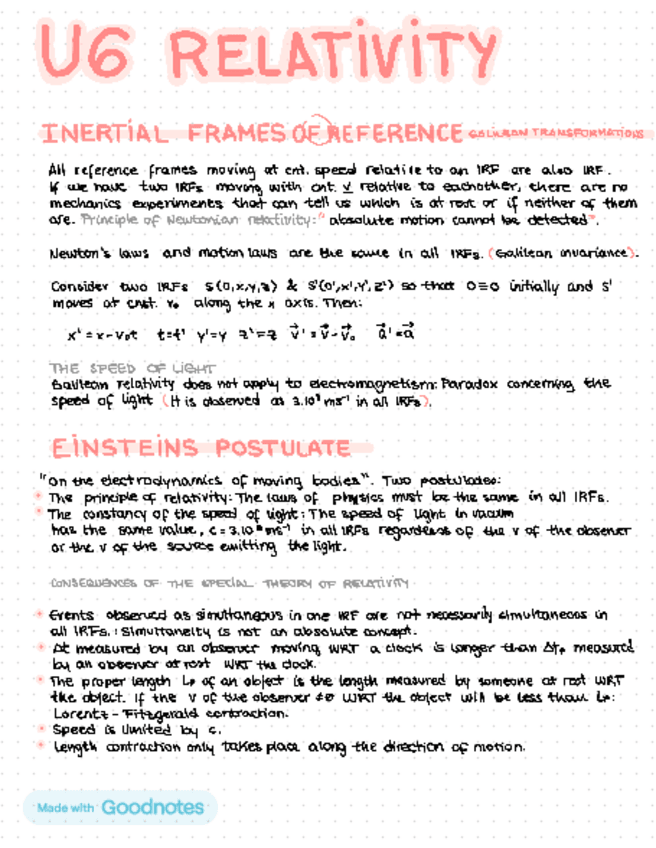 U6 RELATIVITY
INERTIAL FRAMES OF REFERENCE GALILEAN TRANSFORMATIONS
All reference frames moving at cnt. speed relative to an IRF are also IRF.
If we have two IRFs moving with cnt. v relative to eachother, there are no
mechanics experiments that can tell us which is at rest or if neither of them
are. Principle of Newtonian relativity: "absolute motion cannot be detected".
Newton's laws and motion laws are the same in all IRFs. (Galilean invariance).
Consider two IRFs S(0,x,y,z) & S'(0',x',y',z') so that 0≡0 initially and S'
moves at cnst. v₀ along the x axis. Then:
x' = x-v₀t t=t' y'=y z'=z v⃗' = v⃗-v⃗₀ a⃗'=a⃗
THE SPEED OF LIGHT
Galilean relativity does not apply to electromagnetism: Paradox concerning the
speed of light (It is observed as 3.10⁸ms⁻¹ in all IRFs).
EINSTEINS POSTULATE
"On the electrodynamics of moving bodies". Two postulates:
* The principle of relativity: The laws of physics must be the same in all IRFs.
* The constancy of the speed of light: The speed of light in vacuum
has the same value, c = 3.10⁸ms⁻¹ in all IRFs regardless of the v of the observer
or the v of the source emitting the light.
CONSEQUENCES OF THE SPECIAL THEORY OF RELATIVITY
* Events observed as simultaneous in one IRF are not necessarily simultaneous in
all IRFs.: Simultaneity is not an absolute concept.
* Δt measured by an observer moving WRT a clock is longer than Δtₚ measured
by an observer at rest WRT the clock.
* The proper length Lₚ of an object is the length measured by someone at rest WRT
the object. If the v of the observer ≠0 WRT the object will be less than Lₚ:
Lorentz - Fitzgerald contraction.
* Speed is limited by c.
* Length contraction only takes place along the direction of motion.
Made with Goodnotes